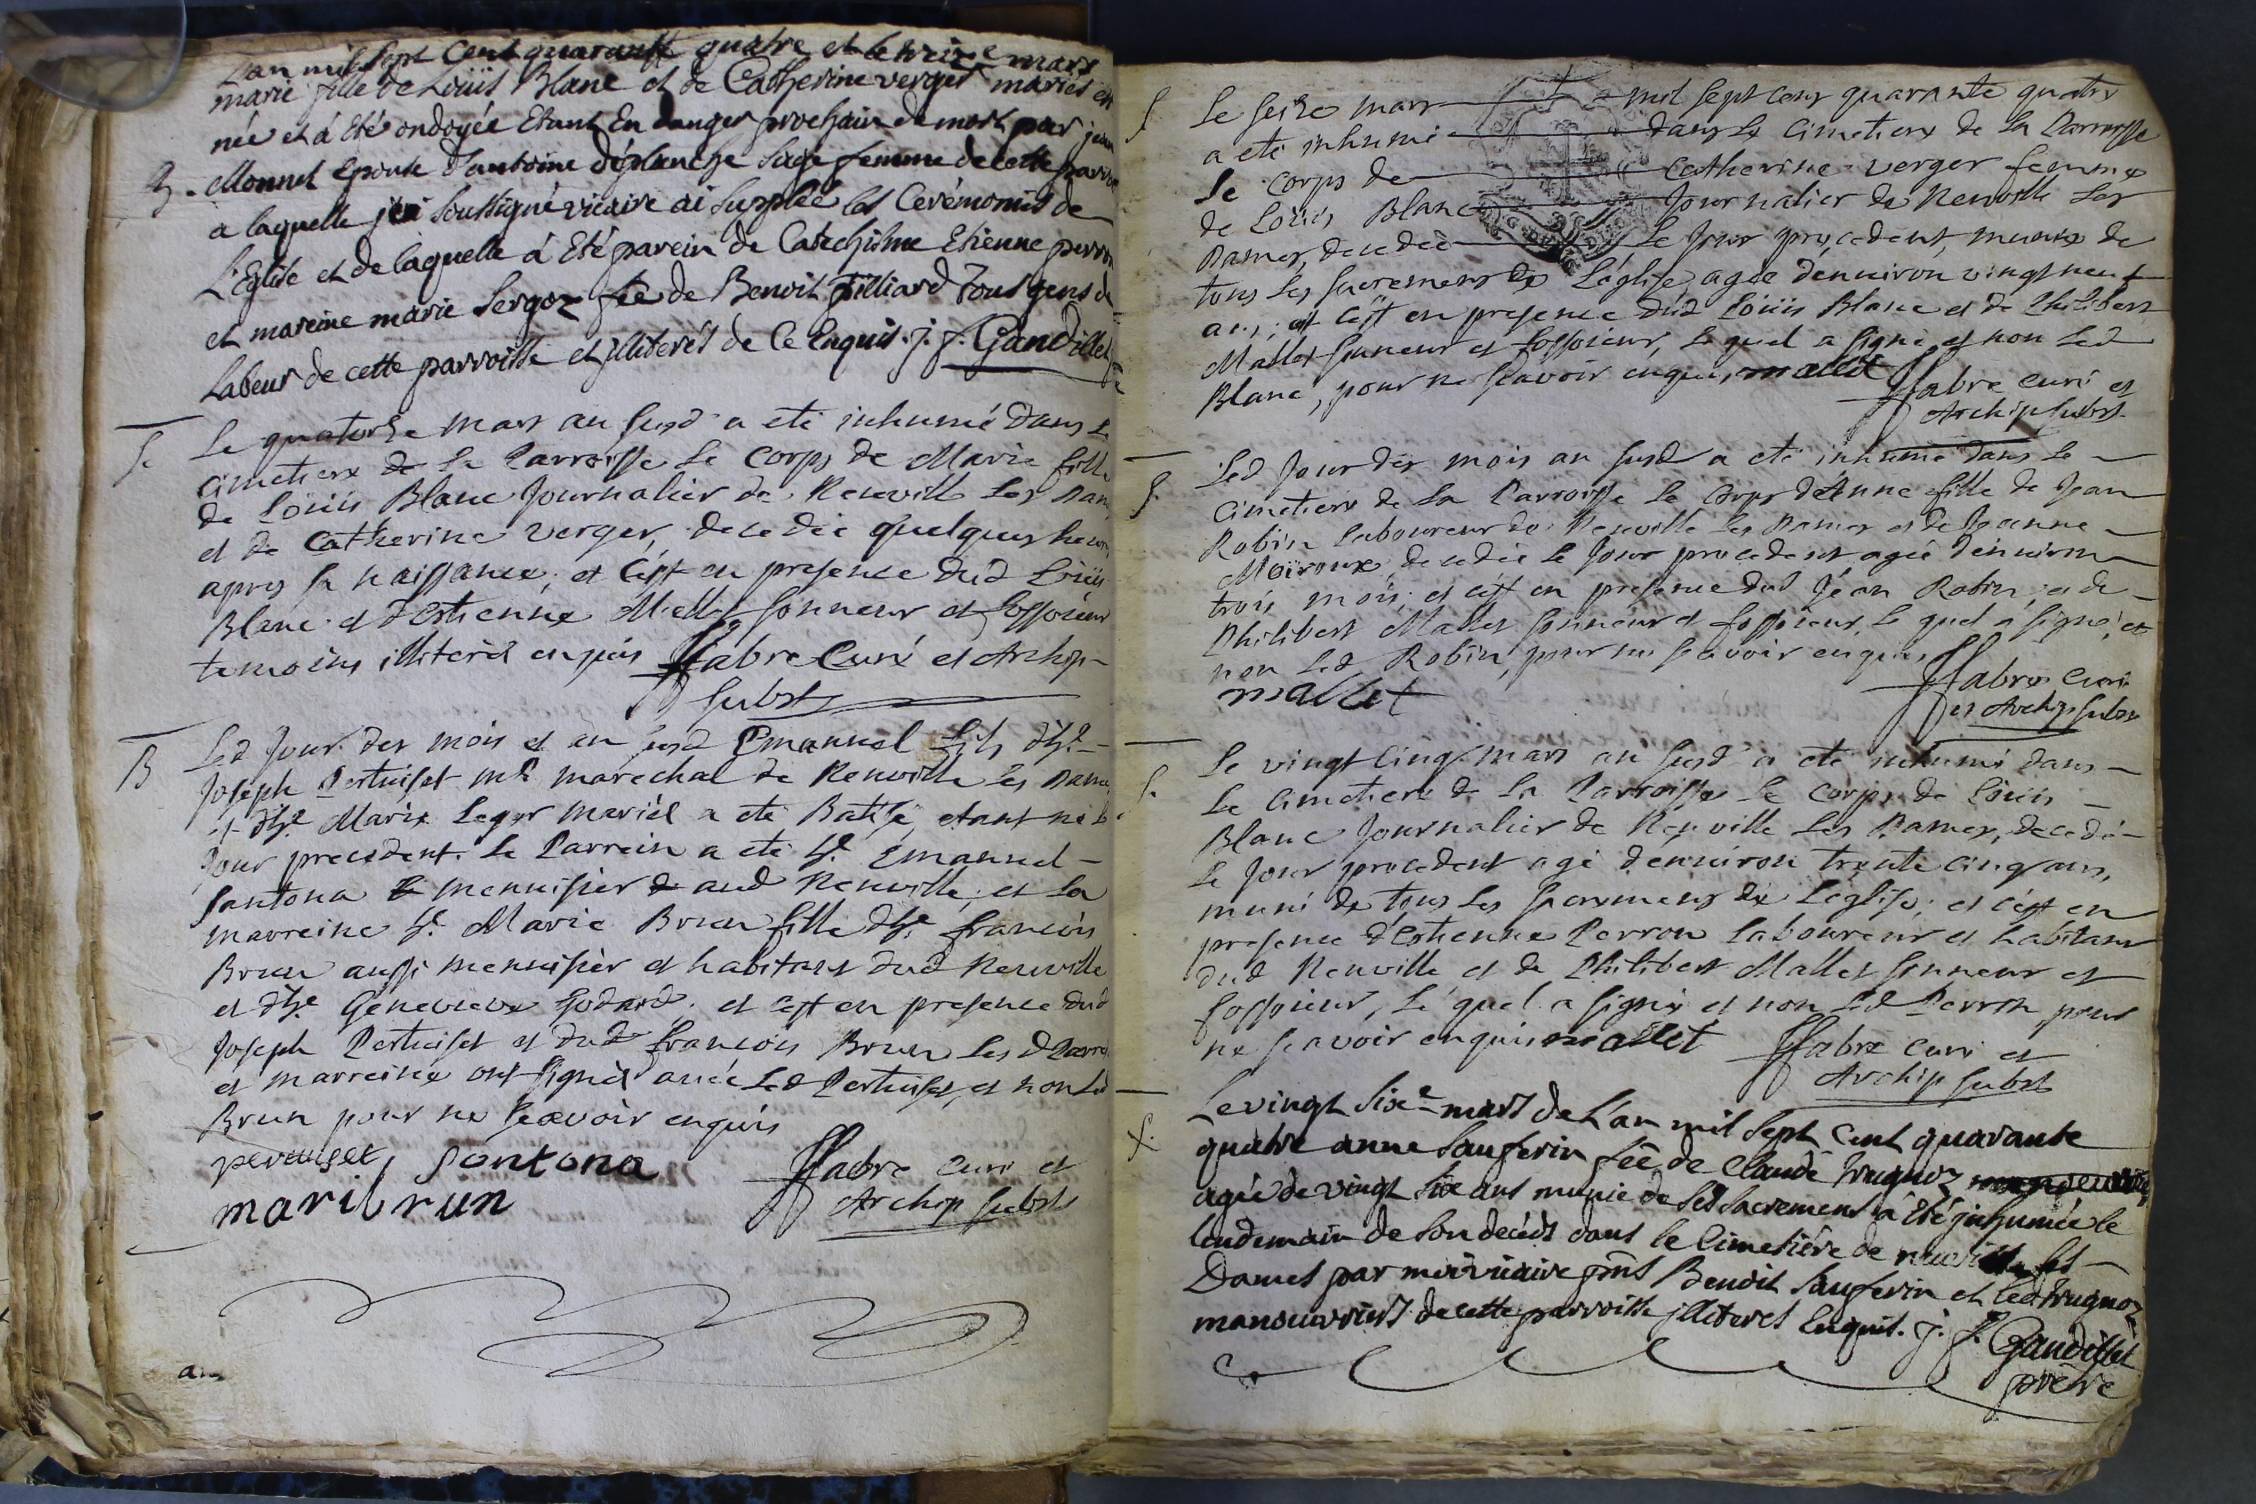 L'an mil sept cent quarante quatre et le treize mars
marie fille de Loüis Blanc et de Catherine verger mariés est
née et á Eté ondoyée Etant En danger prochain de mort par jeann
B. Monnet Epouse d'antoine déplanche Sage femme de cette parroi
a laquelle j'ai Soussigné viüaire ai Supplée les Cerémonies de
L'Eglise et de laquelle á Eté parein de Catechisme Etienne perron
et mareine marie Sergoz fẽe de Benoit pilliard Tous gens de
Labeur de cette parroisse et jlliterés de Ce Enquis. j. f. Gandillet
S. Le quatorze Mars an susd a eté inhumé dans le
Cimetiere de la Parroisse Le Corps de Marie fille
de Loüis Blanc Journalier de Neuville Les Dam
et de Catherine verger, decedée quelques heures
apres sa naissance, et c'est en presence dud Loüis
Blanc et d'Estienne Mallet sonneur et fossoieur
temoins illiterés enquis ffabre Curé et Archip
subst
B Led Jour des mois et an susd Emanuel fils d'h.e
Joseph Pertuiset m.e marechal de Neuville les Dames
et d'h.e Marie Leger mariés a eté Batisé, etant né le
Jour precedent. Le Parrein a eté h.e Emanuel
santona menuisier aud Neuville, et La
marreine h.e Marie Brun fille d'h.e francois
Brun aussi menuisier et habitant dud Neuville
et d'h.e Genevieve Godard. et c'est en presence dud
Joseph Pertuiset et dud francois Brun Les d Parre
et marreine ont signés avec Led Pertuiset, et non Led
Brun pour ne sçavoir enquis
pertuiset, santona ffabre curé et
mari brun Archip subst
S. Le seize mars mil sept cens quarante quatre
a eté inhumé dans Le Cimetiere de La Parroisse
Le Corps de Catherine verger femme
de Loüis Blanc Journalier de Neuville Les
Dames, decedée Le Jour precedent, munie de
tous Les sacremens de L'église, agée d'enniron vingt neuf
ans; et c'est en presence dud Loüis Blanc et de Philibert
Mallet sonneur et fossoieur, Le quel a signé, et non Led
Blanc, pour ne sçavoir enquis, mallet ffabre curé et
Archip subst
S. Led Jour des mois an susd a eté inhumé dans Le
Cimetiere de La Parroisse Le Corps d'Anne fille de Jean
Robin Laboureur de Neuville Les Dames et de Jeanne
Moiroux, decedée Le Jour precedent, agée d'enniron
trois mois; et c'est en presence dud Jean Robin, et de
Philibert Mallet sonneur et fossoieur, Le quel a signé, et
non Led Robin, pour ne sçavoir enquis ffabre Curé
mallet et Archip subst
S. Le vingt cinq mars an susd a eté inhumé dans
Le Cimetiere de La Parroisse Le Corps de Loüis
Blanc Journalier de Neuville Les Dames, decedé
Le Jour precedent agé d'enniron trente cinq ans,
muni de tous Les sacremens de L'eglise; et c'est en
presence d'Estienne Perron Laboureur et habitant
dud Neuville et de Philibert Mallet sonneur et
fossoieur, Le quel a signé et non Led Perron pour
ne sçavoir enquis mallet ffabre curé et
Archip subst
S. Le vingt six.e mars de L'an mil sept cent quarante
quatre anne sauferin fẽe de Claude Trugnoz
agée de vingt six ans munie de ses sacrements á Eté jnhumée le
lendemain de son decéds dans le Cimetiére de neuville les
Dames par moi viüaire pñts Benoit Sauferin et led trugnoz
manouvriers de cette parroisse jlliteres Enquis. j. f. Gandillet
prêtre